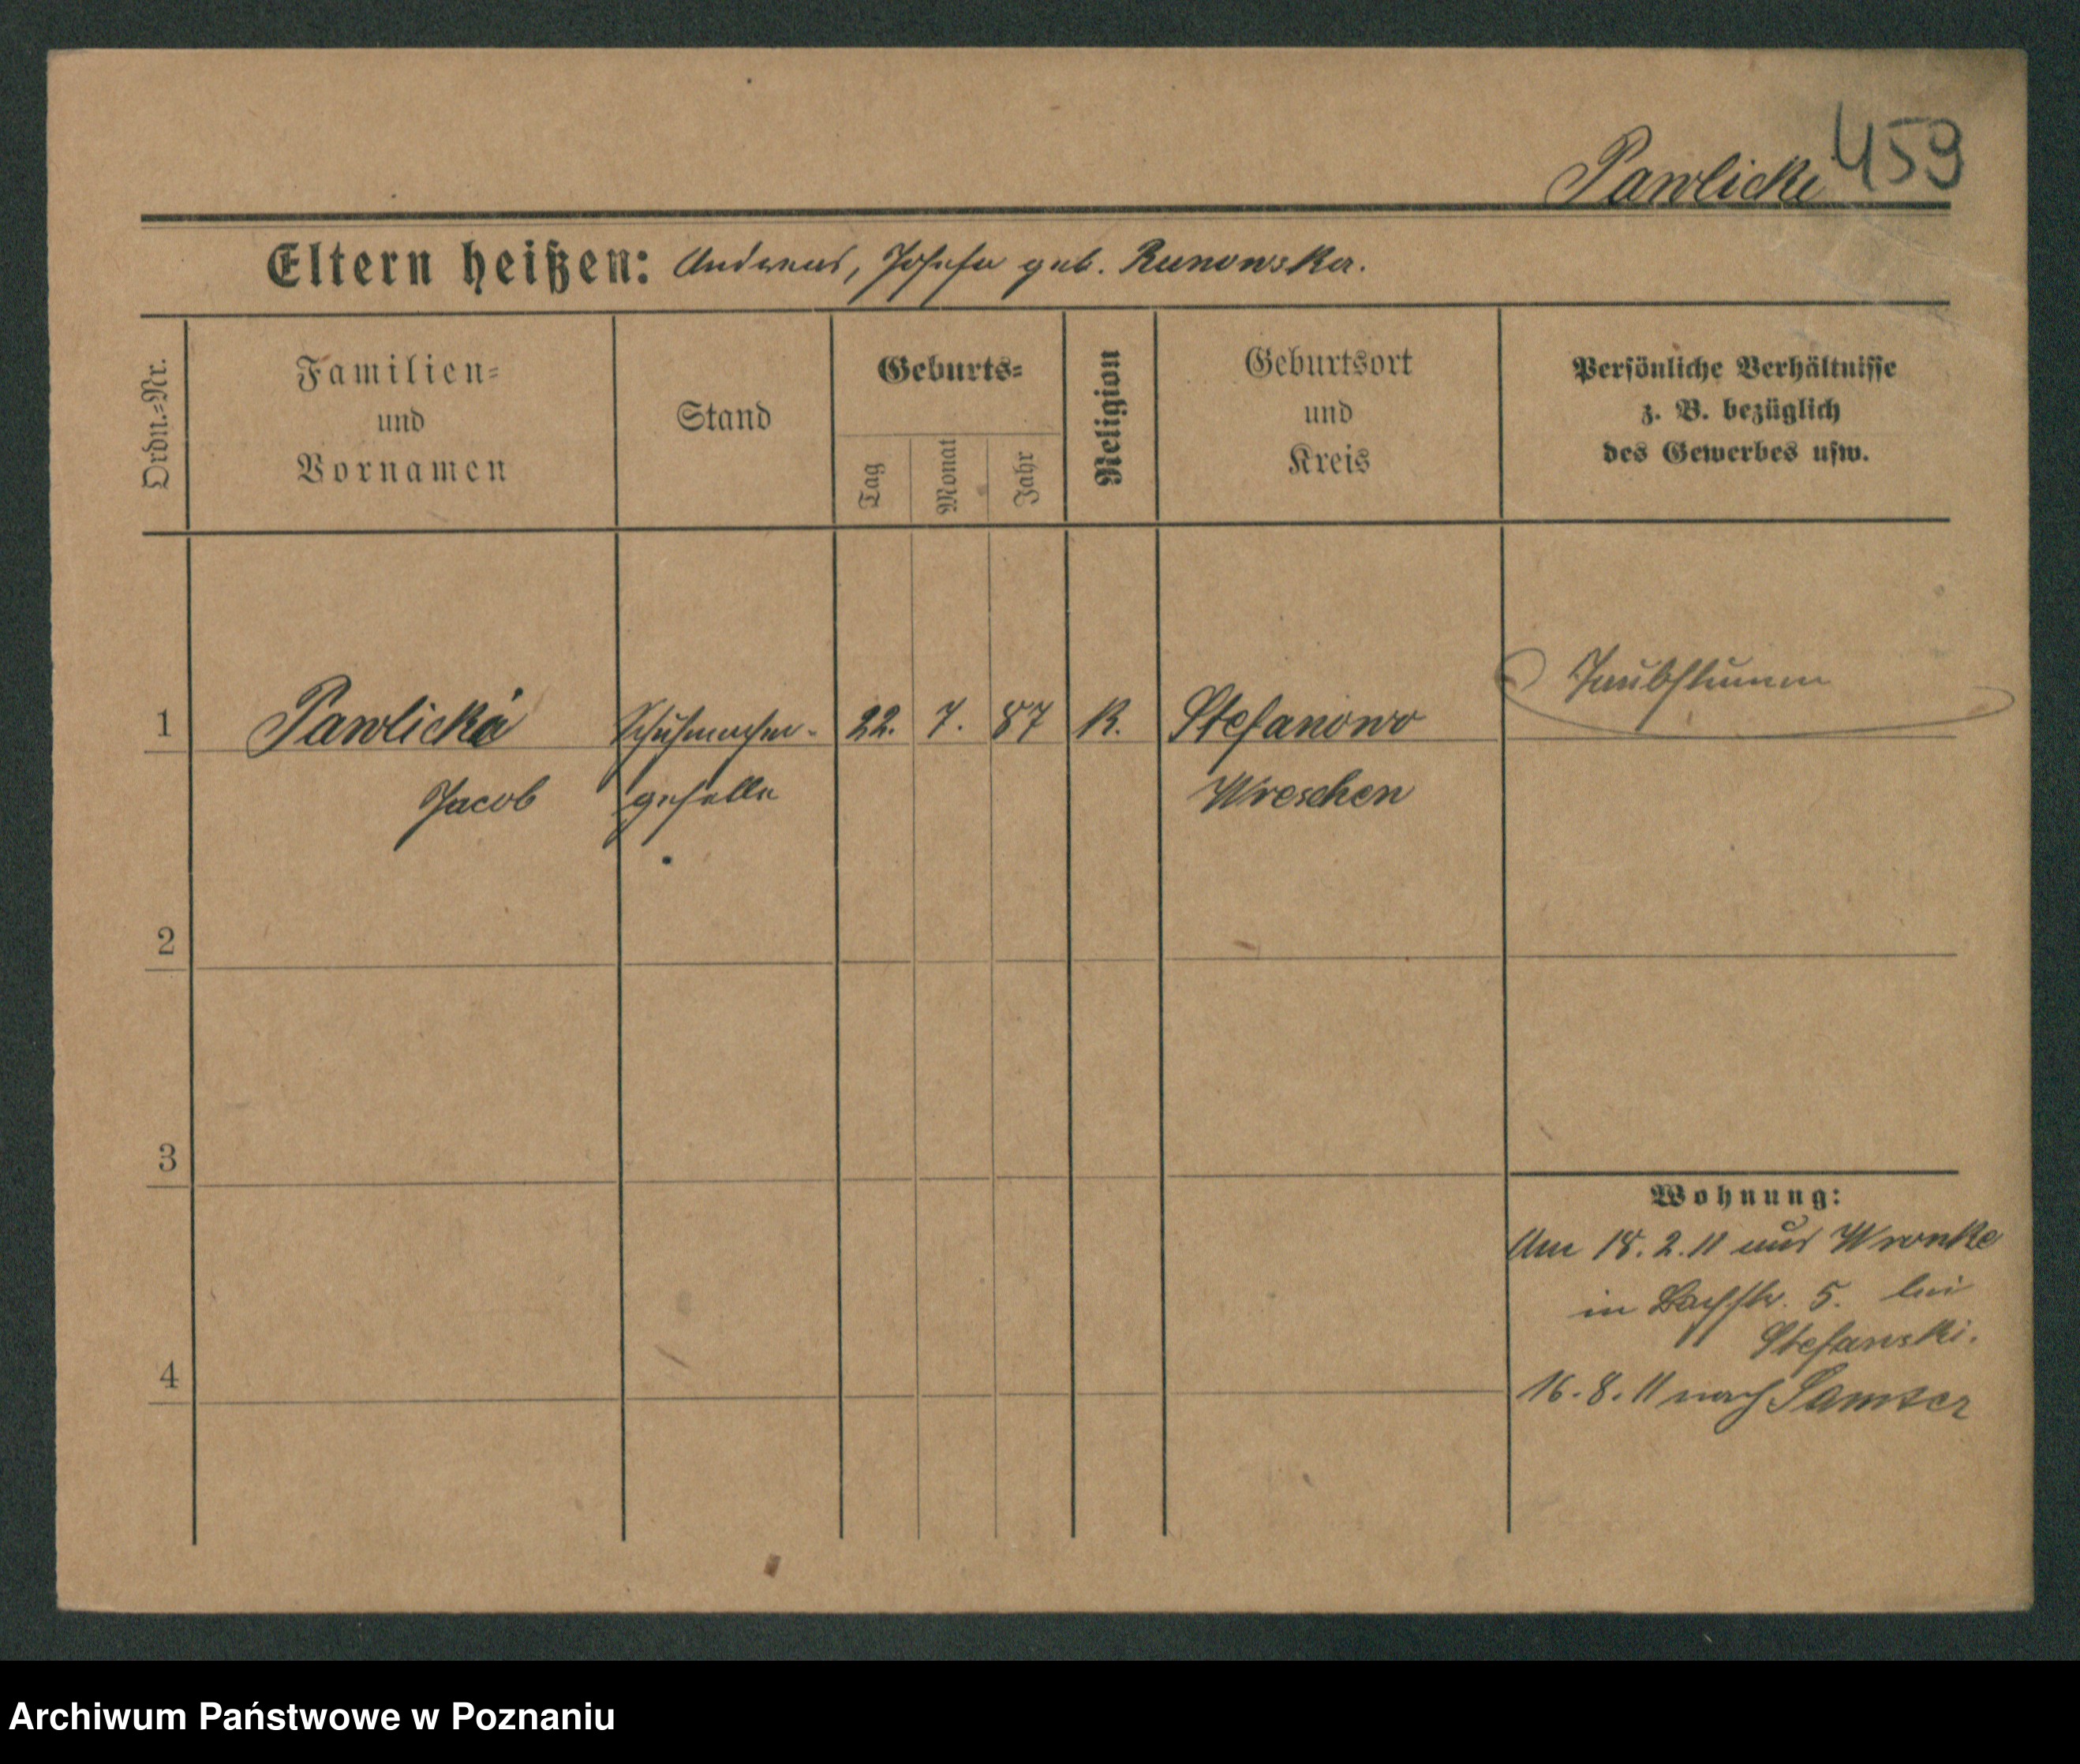 459
Pawlicki
Eltern heißen: Andreas, Josefa geb. Runowska.
Ordn.=Nr.
Familien=
und
Vornamen
Stand
Geburts=
Tag
Monat
Jahr
Religion
Geburtsort
und
Kreis
Persönliche Verhältnisse
z. B. bezüglich
des Gewerbes usw.
1 Pawlicki Schuhmacher- 22. 7. 87 K. Stefanowo Taubstumm
Jacob geselle Wreschen
2
3
Wohnung:
Am 18. 2. 11 aus Wronke
in Bachstr. 5. bei
Stefanski.
4
16. 8. 11 nach Samter
Archiwum Państwowe w Poznaniu